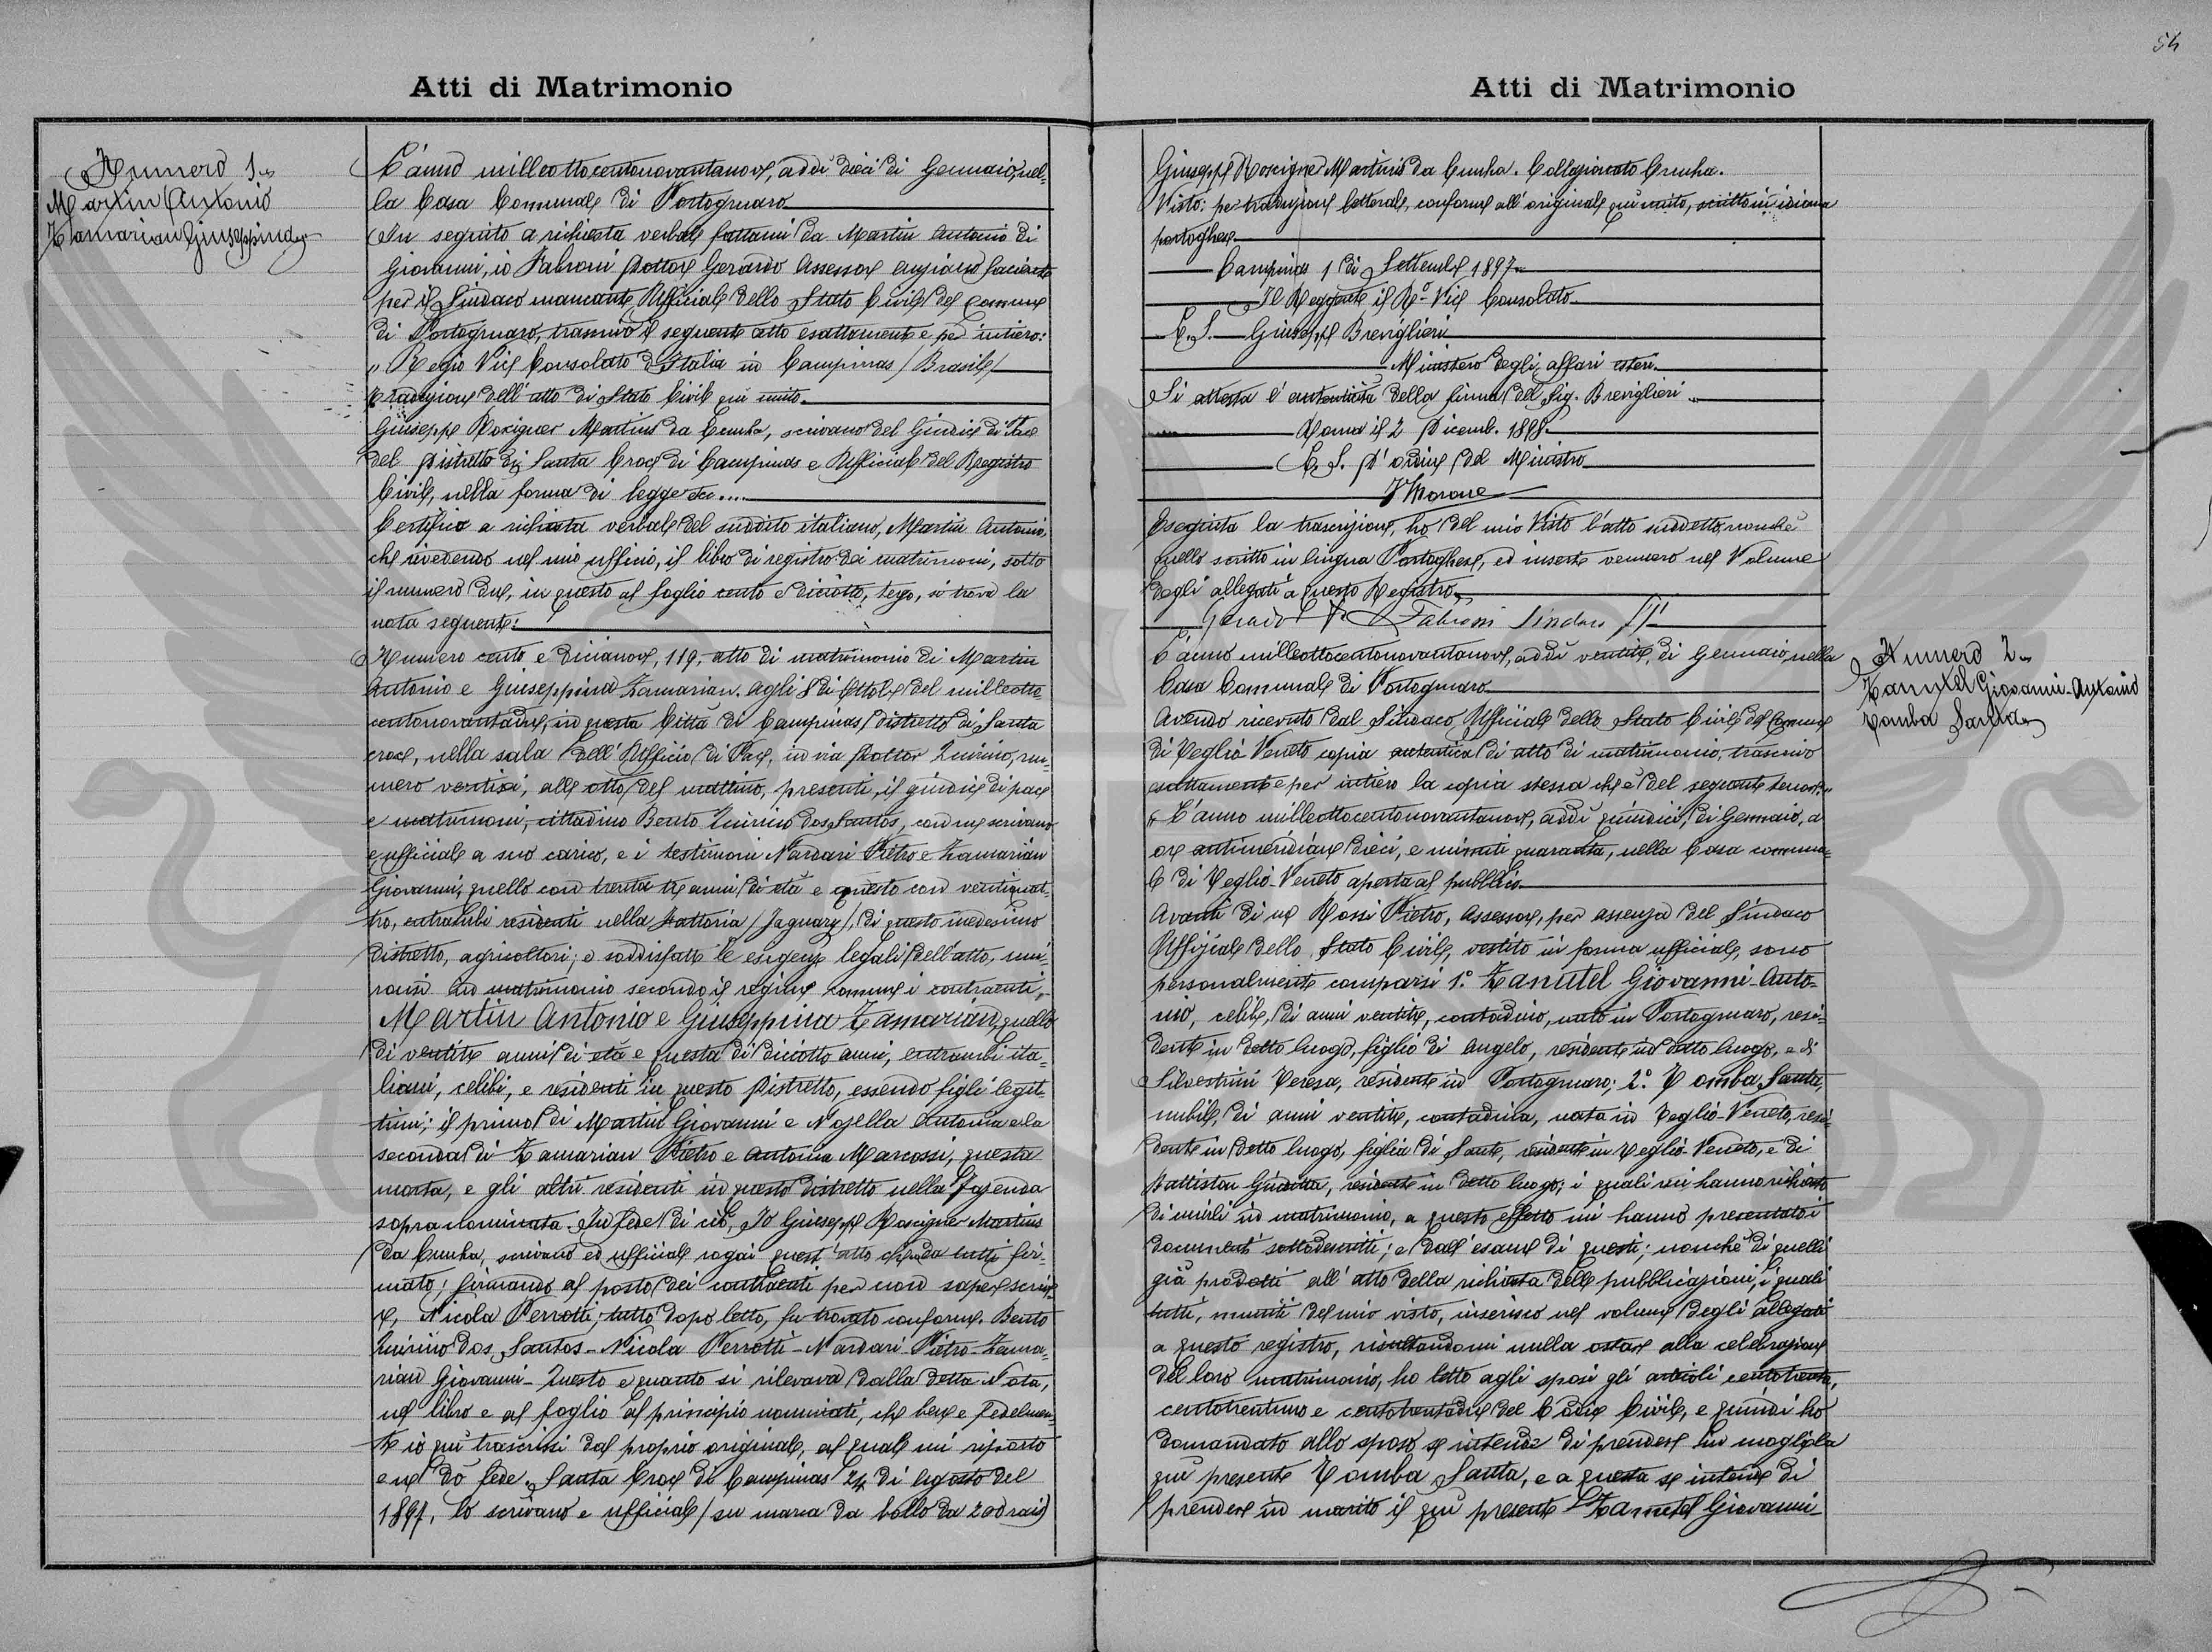 54
Atti di Matrimonio
Numero 1
Martin Antonio
Zamarian Giuseppina
L'anno milleottocentonovantanove, addì dieci di Gennaio, nel-
la Casa Comunale di Portogruaro
In seguito a richiesta verbale fattami da Martin Antonio di
Giovanni, io Fabroni Dottore Gerardo Assessore anziano facente
per il Sindaco mancante Ufficiale dello Stato Civile del Comune
di Portogruaro, trascrivo il seguente atto esattamente e per intiero:
" Regio Vice Consolato d'Italia in Campinas / Brasile /
Traduzione dell'atto di Stato Civile qui unito.
Giuseppe Rosigner Martins da Cunha, scrivano del Giudice di Pace
del Distretto di Santa Croce di Campinas e Ufficiale del Registro
Civile, nella forma di legge ecc....
Certifico a richiesta verbale del suddito italiano, Martin Antonio,
che rivedendo nel mio ufficio, il libro di registro dei matrimoni, sotto
il numero due, in questo al foglio cento e diciotto, tergo, si trova la
nota seguente:
Numero cento e dicianove, 119, atto di matrimonio di Martin
Antonio e Giuseppina Zamarian. Agli 8 di Ottobre del milleotto-
centonovantadue, in questa Città di Campinas, distretto di Santa
croce, nella sala dell'Ufficio di Pace, in via Dottor Quirino, nu-
mero ventisei, alle otto del mattino, presenti, il giudice di pace
e matrimoni, cittadino Bento Quirino dos Santos, con me scrivano
e ufficiale a suo carico, e i testimoni Nardari Pietro e Zamarian
Giovanni, quello con trenta tre anni di età e questo con ventiquat-
tro, entrambi residenti nella Fattoria / Jaguary /, di questo medesimo
distretto, agricoltori; e soddisfatte le esigenze legali dell'atto, uni-
ronsi in matrimonio secondo il regime comune i contraenti,
Martin Antonio e Giuseppina Zamarian, quello
di ventitre anni di età e questa di diciotto anni, entrambi ita-
liani, celibi, e residenti in questo Distretto, essendo figli legit-
timi; il primo di Martin Giovanni e Nosella Antonia e la
seconda di Zamarian Pietro e Antonia Marcossi, questa
morta, e gli altri residenti in questo distretto nella fazenda
sopranominata. In fede di ciò, Io Giuseppe Roscigner Martins
da Cunha, scrivano ed ufficiale rogai quest'atto che da tutti fir-
mato; firmando al posto dei contraenti per non sapere scrive-
re, Nicola Perrotti; tutto dopo letto, fu trovato conforme. Bento
Quirino dos Santos - Nicola Perrotti - Nardari Pietro - Zama-
rian Giovanni - Questo e quanto si rilevava dalla detta Nota,
nel libro e al foglio al principio nominati, che bene e fedelmen-
te io qui trascrissi dal proprio originale, al quale mi riporto
e ne dò fede. Santa Croce di Campinas 24 di Agosto del
1897, lo scrivano e ufficiale / su marca da bollo da 200 rais)
Atti di Matrimonio
Giuseppe Roscigne Martins da Cunha. Collazionato Cunha.
Visto: per traduzione letterale, conforme all'originale qui unito, scritto in idioma
portoghese.
Campinas 1 di Settembre 1897
Il Reggente il R.o Vice Consolato
L. S. Giuseppe Breviglieri
Ministero degli affari esteri.
Si attesta l'autenticità della firma del Sig. Breviglieri
Roma il 2 Dicemb. 1898.
L. S. D'ordine del Ministro
Morone
Eseguita la trascrizione, ho del mio Visto l'atto suddetto, nonchè
quello scritto in lingua Portoghese, ed inserte vennero nel Volume
degli allegati a questo Registro.
Gerardo Fabroni Sindaco
L'anno milleottocentonovantanove, addì ventitre, di Gennaio, nella
Casa Comunale di Portogruaro
Numero 2
Zanutel Giovanni-Antonio
Tomba Santa
Avendo ricevuto dal Sindaco Ufficiale dello Stato Civile del Comune
di Teglio Veneto copia autentica di atto di matrimonio, trascrivo
esattamente per intiero la copia stessa che è del seguente tenore:
" L'anno milleottocentonovantanove, addì quindici, di Gennaio, a
ore antimeridiane dieci, e minuti quaranta, nella Casa comuna-
le di Teglio-Veneto aperta al pubblico
Avanti di me Rossi Pietro, Assessore, per assenza del Sindaco
Uffiziale dello Stato Civile, vestito in forma ufficiale, sono
personalmente comparsi 1.o Zanutel Giovanni-Anto-
nio, celibe, di anni ventitre, contadino, nato in Portogruaro, resi-
dente in detto luogo, figlio di Angelo, residente in detto luogo, e di
Silvestrini Teresa, residente in Portogruaro; 2.o Tomba Santa,
nubile, di anni ventitre, contadina, nata in Teglio-Veneto, resi-
dente in detto luogo, figlia di Sante, residente in Teglio-Veneto, e di
Battiston Giuditta, residente in detto luogo; i quali mi hanno richiesto
di unirli in matrimonio, a questo effetto mi hanno presentato i
documenti sottodescritti; e dall'esame di questi; nonchè di quelli
già prodotti all'atto della richiesta delle pubblicazioni, i quali
tutti, muniti del mio visto, inserisco nel volume degli allegati
a questo registro, risultandomi nulla ostare alla celebrazione
del loro matrimonio, ho letto agli sposi gli articoli centotrenta,
centotrentuno e centotrentadue del Codice Civile, e quindi ho
domandato allo sposo se intende di prendere in moglie la
qui presente Tomba Santa, e a questa se intende di
prendere in marito il qui presente Zanutel Giovanni-